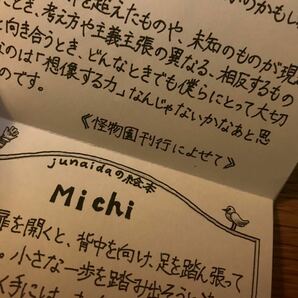 を超えたものや、未知のものが現
とき、考え方や主義主張の異なる、相反するもの
と向き合うとき、どんなときでも僕らにとって大切
なのは「想像する力」なんじゃないかなあと思
のです。
《怪物園刊行によせて》
junaidaの絵本
Michi
扉を開くと、背中を向け、足を踏ん張って
。小さな一歩を踏み出そうに
く手には、